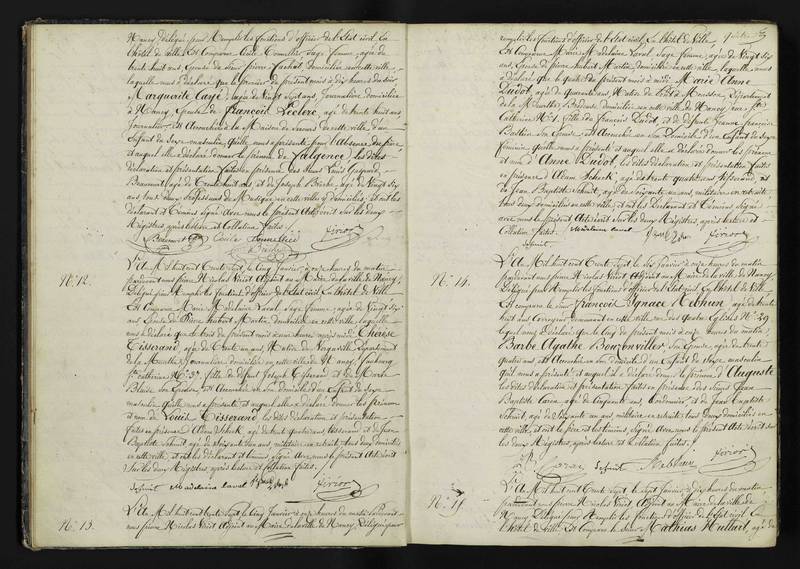 Nancy, délégué pour Remplir les fonctions d'officier de l'Etat civil, En
l'hôtel de ville, Est Comparue Cécile Tonnellier, Sage femme, agée de
trente huit ans, Epouse de Sieur Pierre domiciliée en cette ville,
laquelle nous a déclaré que le premier du présent mois à dix heures du soir
Marguerite Cagé, agée de Vingt Sept ans, Journalière, domiciliée
à Nancy, Epouse de François Leclerc, agé de trente huit ans
Journalier, Est Accouchée à la Maison de Secours de cette ville, d'un
Enfant du Sexe masculin, qu'elle nous a présenté pour l'absence du père
et auquel elle a déclaré donner le prénom de Fulgence, les dites
déclaration et présentation faites en présence des Sieurs Louis Gaspard
Beaumont, agé de Trente huit ans, et de Joseph agé de Vingt Six
ans, tous deux Professeurs de Musique, en cette ville domiciliés, et ont les
déclarant et témoins Signé Avec nous le présent Acte écrit Sur les deux
Registres, après lecture et Collation faites.
Cécile Tonnellier
N°. 12.
L'An Mil huit cent Trente Sept, le Cinq Janvier, à onze heures du matin,
pardevant nous Pierre Nicolas Adjoint au Maire de la ville de Nancy,
Délégué pour Remplir les fonctions d'officier de l'Etat civil, En l'hôtel de Ville
Est Comparue Marie Madelaine Laval, Sage femme, agée de Vingt Six
ans, Epouse de Pierre Hubert Martin, domiciliée en cette ville, laquelle
nous a déclaré que le trois du présent mois à une heure après midi, Thérèse
Tisserand, agée de Trente un ans, Native de Département
de la Meurthe, Journalière, domiciliée en cette ville de Nancy, faubourg
Ste. Catherine N°. 3, fille de défunt Joseph Tisserand et de Marie
Blaise, son Epouse, Est Accouchée en Son domicile d'un Enfant du Sexe
masculin, qu'elle nous a présenté et auquel elle a déclaré donner les prénom
et nom de Louis Tisserand, les dites déclaration et présentation
faites en présence d'Adam Scheck, agé de trente quatre ans, tisserand, et de Jean
Baptiste Schmit, agé de Soixante un ans, militaire en retraite, tous deux domiciliés
en cette ville, et ont les déclarant et témoins, Signé Avec nous, le présent Acte écrit
Sur les deux Registres, après lecture et Collation faites.
Schmit Madelaine Laval
N°. 13.
L'An Mil huit cent Trente Sept, le Cinq Janvier, à onze heures du matin, Pardevant
nous Pierre Nicolas Adjoint au Maire de la ville de Nancy, Délégué pour
remplir les fonctions d'officier de l'Etat civil, En l'hôtel de Ville
Est Comparue Marie Madelaine Laval, Sage femme, agée de Vingt Six
ans, Epouse de Pierre Hubert Martin, domiciliée en cette ville, laquelle nous
a déclaré que le quatre du présent mois à midi, Marie Anne
Dudot, agée de quarante ans, Native de Département
de la Meurthe, Brodeuse, domiciliée en cette ville de Nancy, rue Ste.
Catherine N°. fille de François Dudot, et de défunte Jeanne Françoise
son Epouse, Est Accouchée en Son Domicile d'un Enfant du Sexe
féminin, qu'elle nous a présenté et auquel elle a déclaré donner les prénom
et nom d'Anne Dudot, les dites déclaration et présentation faites
en présence d'Adam Scheck, agé de trente quatre ans, tisserand, et
de Jean Baptiste Schmit, agé de Soixante un ans, militaire en retraite
tous deux domiciliés en cette ville, et ont les Déclarant et témoins Signé
avec nous le présent Acte écrit Sur les deux Registres, après lecture et
Collation faites. Madelaine Laval
Schmit
N°. 14.
L'An Mil huit cent Trente Sept, le Six Janvier, à onze heures du matin
pardevant nous Pierre Nicolas Adjoint au Maire de la ville de Nancy,
Délégué pour Remplir les fonctions d'officier de l'Etat civil, En l'hôtel de Ville
Est Comparu le Sieur François Ignace Rebhun, agé de trente
huit ans, Corroyeur, demeurant en cette ville, rue des quatre Eglises N°. 29
lequel nous a déclaré que le Cinq du présent mois à onze heures du matin,
Barbe Agathe Bouzonviller, Son Epouse, agée de trente
quatre ans, Est Accouchée en Son domicile d'un Enfant du Sexe masculin
qu'il nous a présenté et auquel il a déclaré donner le prénom d'Auguste
les dites déclaration et présentation faites en présence des Sieurs Jean
Baptiste agé de Cinquante ans, Cordonnier, et de Jean Baptiste
Schmit, agé de Soixante un ans, militaire en retraite, tous deux domiciliés en
cette ville, et ont le père et les témoins, Signé Avec nous le présent Acte écrit Sur
les deux Registres, après lecture et Collation faites.
Schmit Rebhun
N°. 15
L'An Mil huit cent Trente Sept, le Sept Janvier, à dix heures du matin,
pardevant nous Pierre Nicolas Adjoint au Maire de la ville de
Nancy, Délégué pour Remplir les fonctions d'officier de l'Etat civil, En
l'hôtel de Ville, Est Comparu le Sieur Mathias agé de